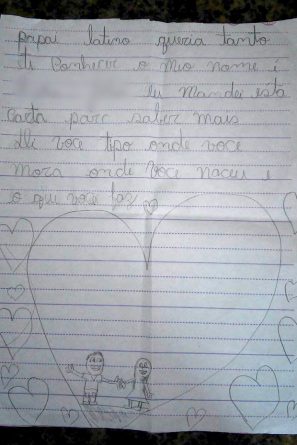 papai latino queria tanto
ti Conhecer o Mio nome é
Eu Mandei está
Carta para saber mais
de você tipo onde você
Mora onde você Naceu e
o que você faz